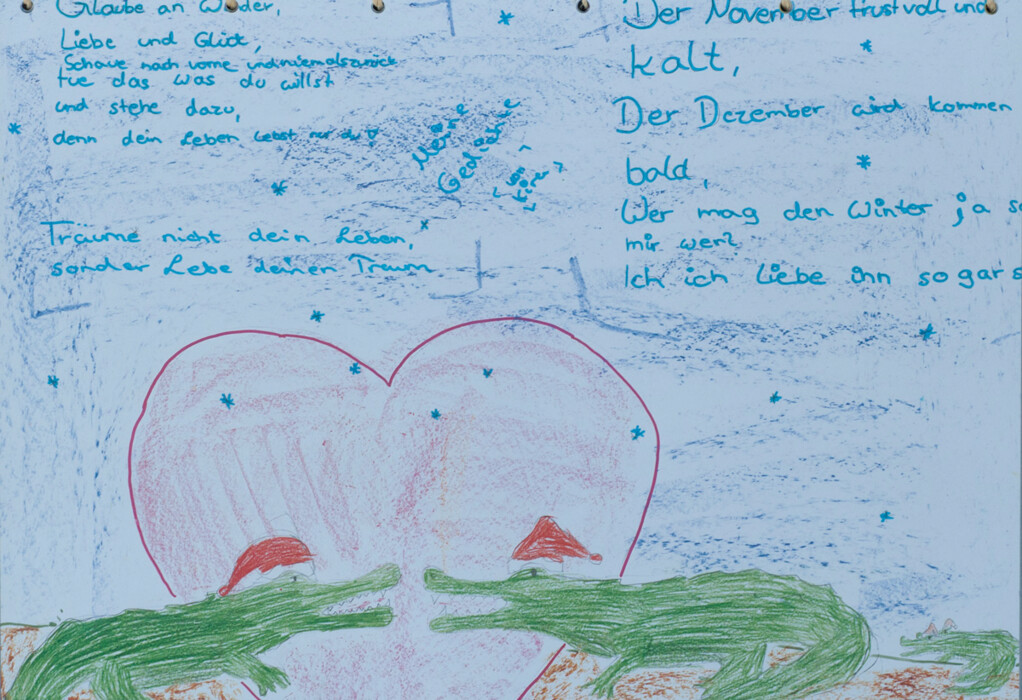 Glaube an Wunder,
Liebe und Glück,
Schaue nach vorne und niemals zurück
tue das was du willst
und stehe dazu,
denn dein Leben lebst nur du!
Träume nicht dein Leben,
sonder Lebe deinen Traum
Meine
Gedanke
Der November trustvoll und
kalt,
Der Dezember wird kommen
bald,
Wer mag den Winter ja so
mir wer?
Ich ich Liebe ihn sogar s